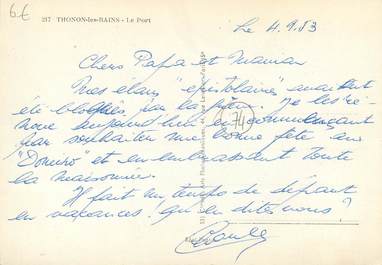 6€
217 THONON-les-BAINS - Le Port
Le 4.9.53
Chers Papa et Maman
Nos élans "épistolaires" avaient
été bloqués par la . Je les ré-
aujourd'hui en commençant
par souhaiter une bonne fête au
" " et en embrassant toute
la maisonnée.
Il fait un temps de départ
en vacances! qu'en dites-vous?
74